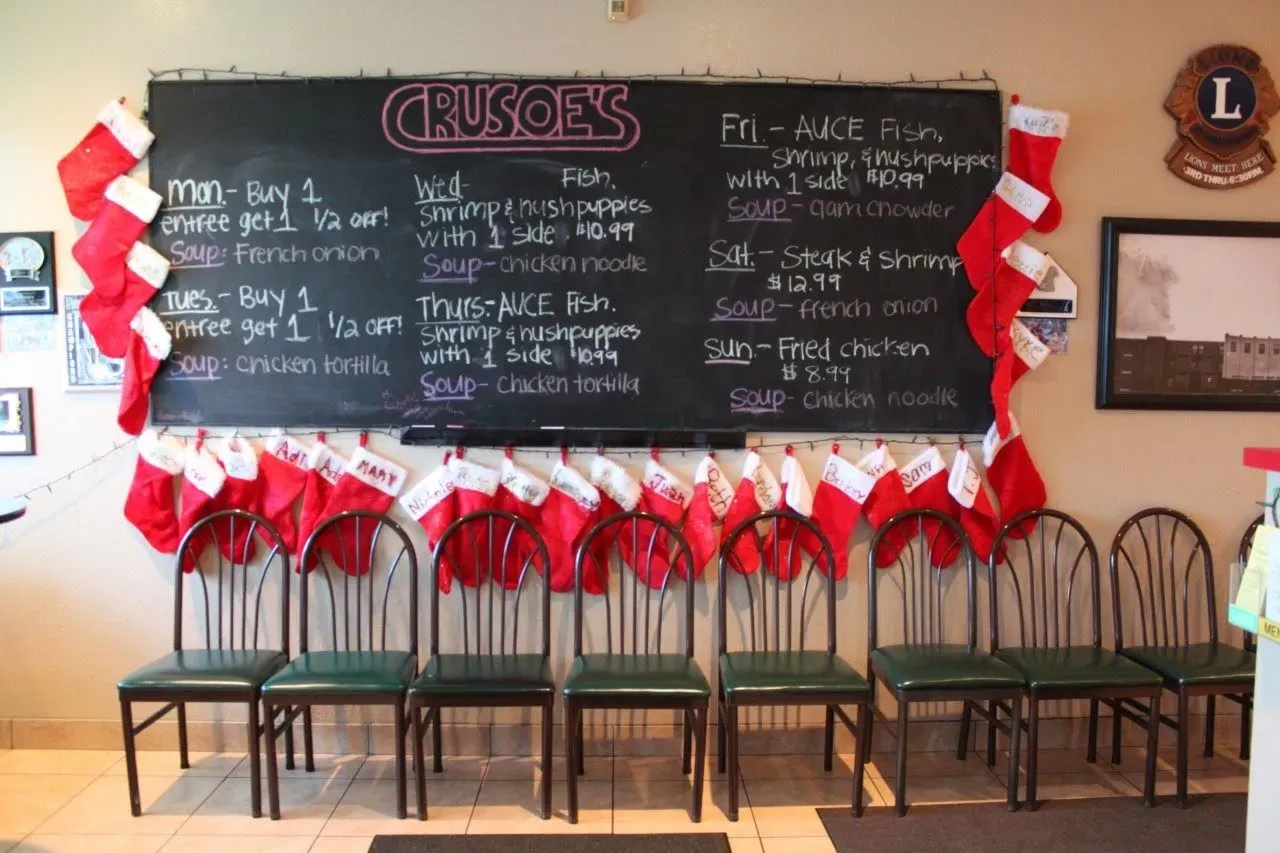 CRUSOE'S
Mon.- Buy 1
entree get 1 1/2 OFF!
Soup: French onion
Tues.- Buy 1
entree get 1 1/2 OFF!
Soup: Chicken tortilla
Wed- Fish.
Shrimp & hushpuppies
with 1 side $10.99
Soup- chicken noodle
Thurs- AUCE Fish.
Shrimp & hushpuppies
with 1 side $10.99
Soup- Chicken tortilla
Fri.- AUCE Fish,
shrimp, & hushpuppies
with 1 side $10.99
Soup- clam chowder
Sat.- Steak & shrimp
$12.99
Soup- french onion
Sun.- Fried chicken
$8.99
Soup- Chicken noodle
LIONS
L
LIONS MEET HERE
3RD THRU. 6:30PM
MARY
Nichole
Juan
Beth
Sam
T.J.
MEN